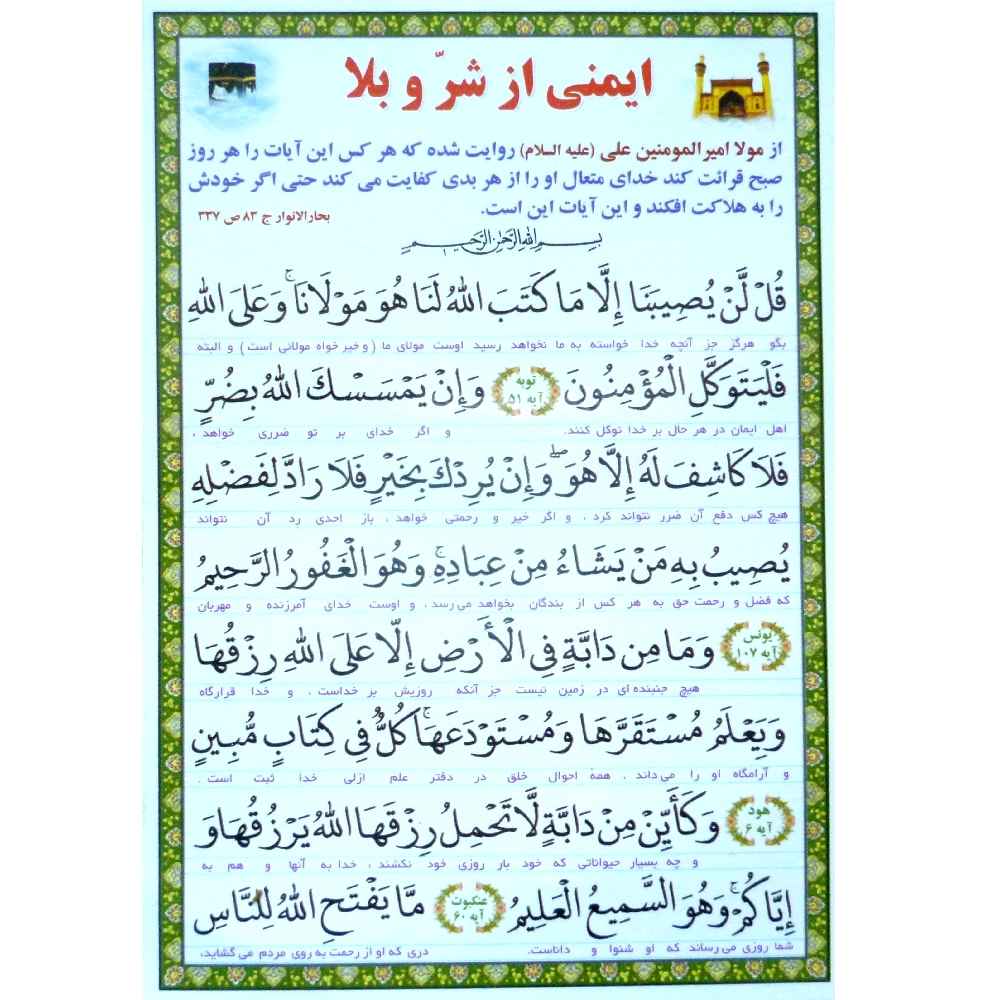 ایمنی از شرّ و بلا
از مولا امیرالمومنین علی (علیه السلام) روایت شده که هر کس این آیات را هر روز
صبح قرائت کند خدای متعال او را از هر بدی کفایت می کند حتی اگر خودش
را به هلاکت افکند و این آیات این است.
بحارالانوار ج ۸۳ ص ۳۳۷
بسم الله الرحمن الرحیم
قُلْ لَّنْ یُصِیبَنَا إِلَّا مَا کَتَبَ اللهُ لَنَا هُوَ مَوْلَانَا ۚ وَعَلَى اللهِ
بگو هرگز جز آنچه خدا خواسته به ما نخواهد رسید اوست مولای ما (و خیر خواه مولائی است) و البته
فَلْیَتَوَکَّلِ الْمُؤْمِنُونَ توبه آیه ۵۱ وَإِنْ یَمْسَسْکَ اللهُ بِضُرٍّ
اهل ایمان در هر حال بر خدا توکل کنند. و اگر خدای بر تو ضرری خواهد ،
فَلَا کَاشِفَ لَهُ إِلَّا هُوَ ۖ وَإِنْ یُرِدْکَ بِخَیْرٍ فَلَا رَادَّ لِفَضْلِهِ
هیچ کس دفع آن ضرر نتواند کرد ، و اگر خیر و رحمتی خواهد ، باز احدی رد آن نتواند
یُصِیبُ بِهِ مَنْ یَشَاءُ مِنْ عِبَادِهِ ۚ وَهُوَ الْغَفُورُ الرَّحِیمُ
که فضل و رحمت حق به هر کس از بندگان بخواهد می رسد ، و اوست خدای آمرزنده و مهربان
یونس آیه ۱۰۷ وَمَا مِن دَابَّةٍ فِی الْأَرْضِ إِلَّا عَلَى اللهِ رِزْقُهَا
هیچ جنبنده ای در زمین نیست جز آنکه روزیش بر خداست ، و خدا قرارگاه
وَیَعْلَمُ مُسْتَقَرَّهَا وَمُسْتَوْدَعَهَا ۚ کُلٌّ فِی کِتَابٍ مُّبِینٍ
و آرامگاه او را می داند ، همه احوال خلق در دفتر علم ازلی خدا ثبت است .
هود آیه ۶ وَکَأَیِّنْ مِنْ دَابَّةٍ لَّا تَحْمِلُ رِزْقَهَا اللهُ یَرْزُقُهَا وَ
و چه بسیار حیواناتی که خود بار روزی خود نکشند ، خدا به آنها و هم به
إِیَّاکُمْ ۚ وَهُوَ السَّمِیعُ الْعَلِیمُ عنکبوت آیه ۶۰ مَّا یَفْتَحِ اللهُ لِلنَّاسِ
شما روزی می رساند که او شنوا و داناست. دری که او از رحمت به روی مردم می گشاید،